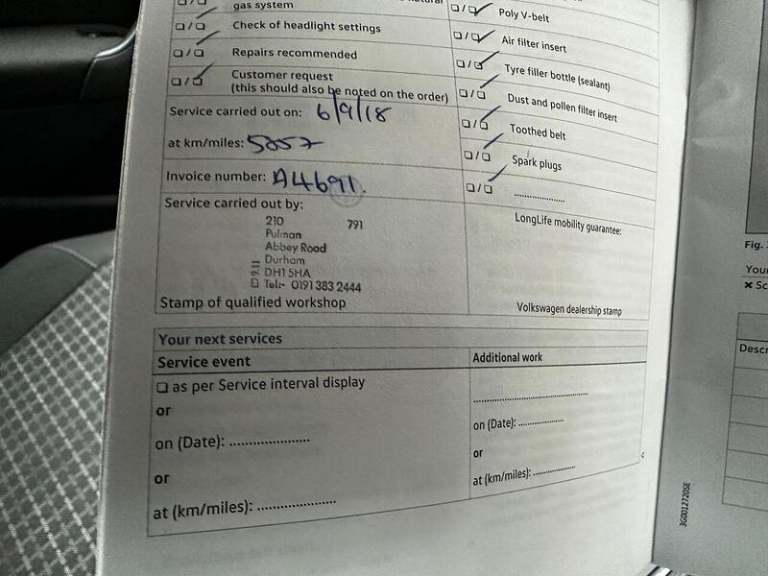 gas system
Check of headlight settings
Repairs recommended
Customer request
(this should also be noted on the order)
Poly V-belt
Air filter insert
Tyre filler bottle (sealant)
Dust and pollen filter insert
Toothed belt
Spark plugs
....................
Service carried out on: 6/9/18
at km/miles: 5257
Invoice number: A4691.
Service carried out by:
210 791
Pulman
Abbey Road
Durham
DH1 5HA
Tel:- 0191 383 2444
Stamp of qualified workshop
LongLife mobility guarantee:
Volkswagen dealership stamp
Your next services
Service event
Additional work
as per Service interval display
or
on (Date): .....................
or
at (km/miles): .....................
..............................
on (Date): ...............
or
at (km/miles): ...............
3G0012720SE
Fig.
Your
Descr